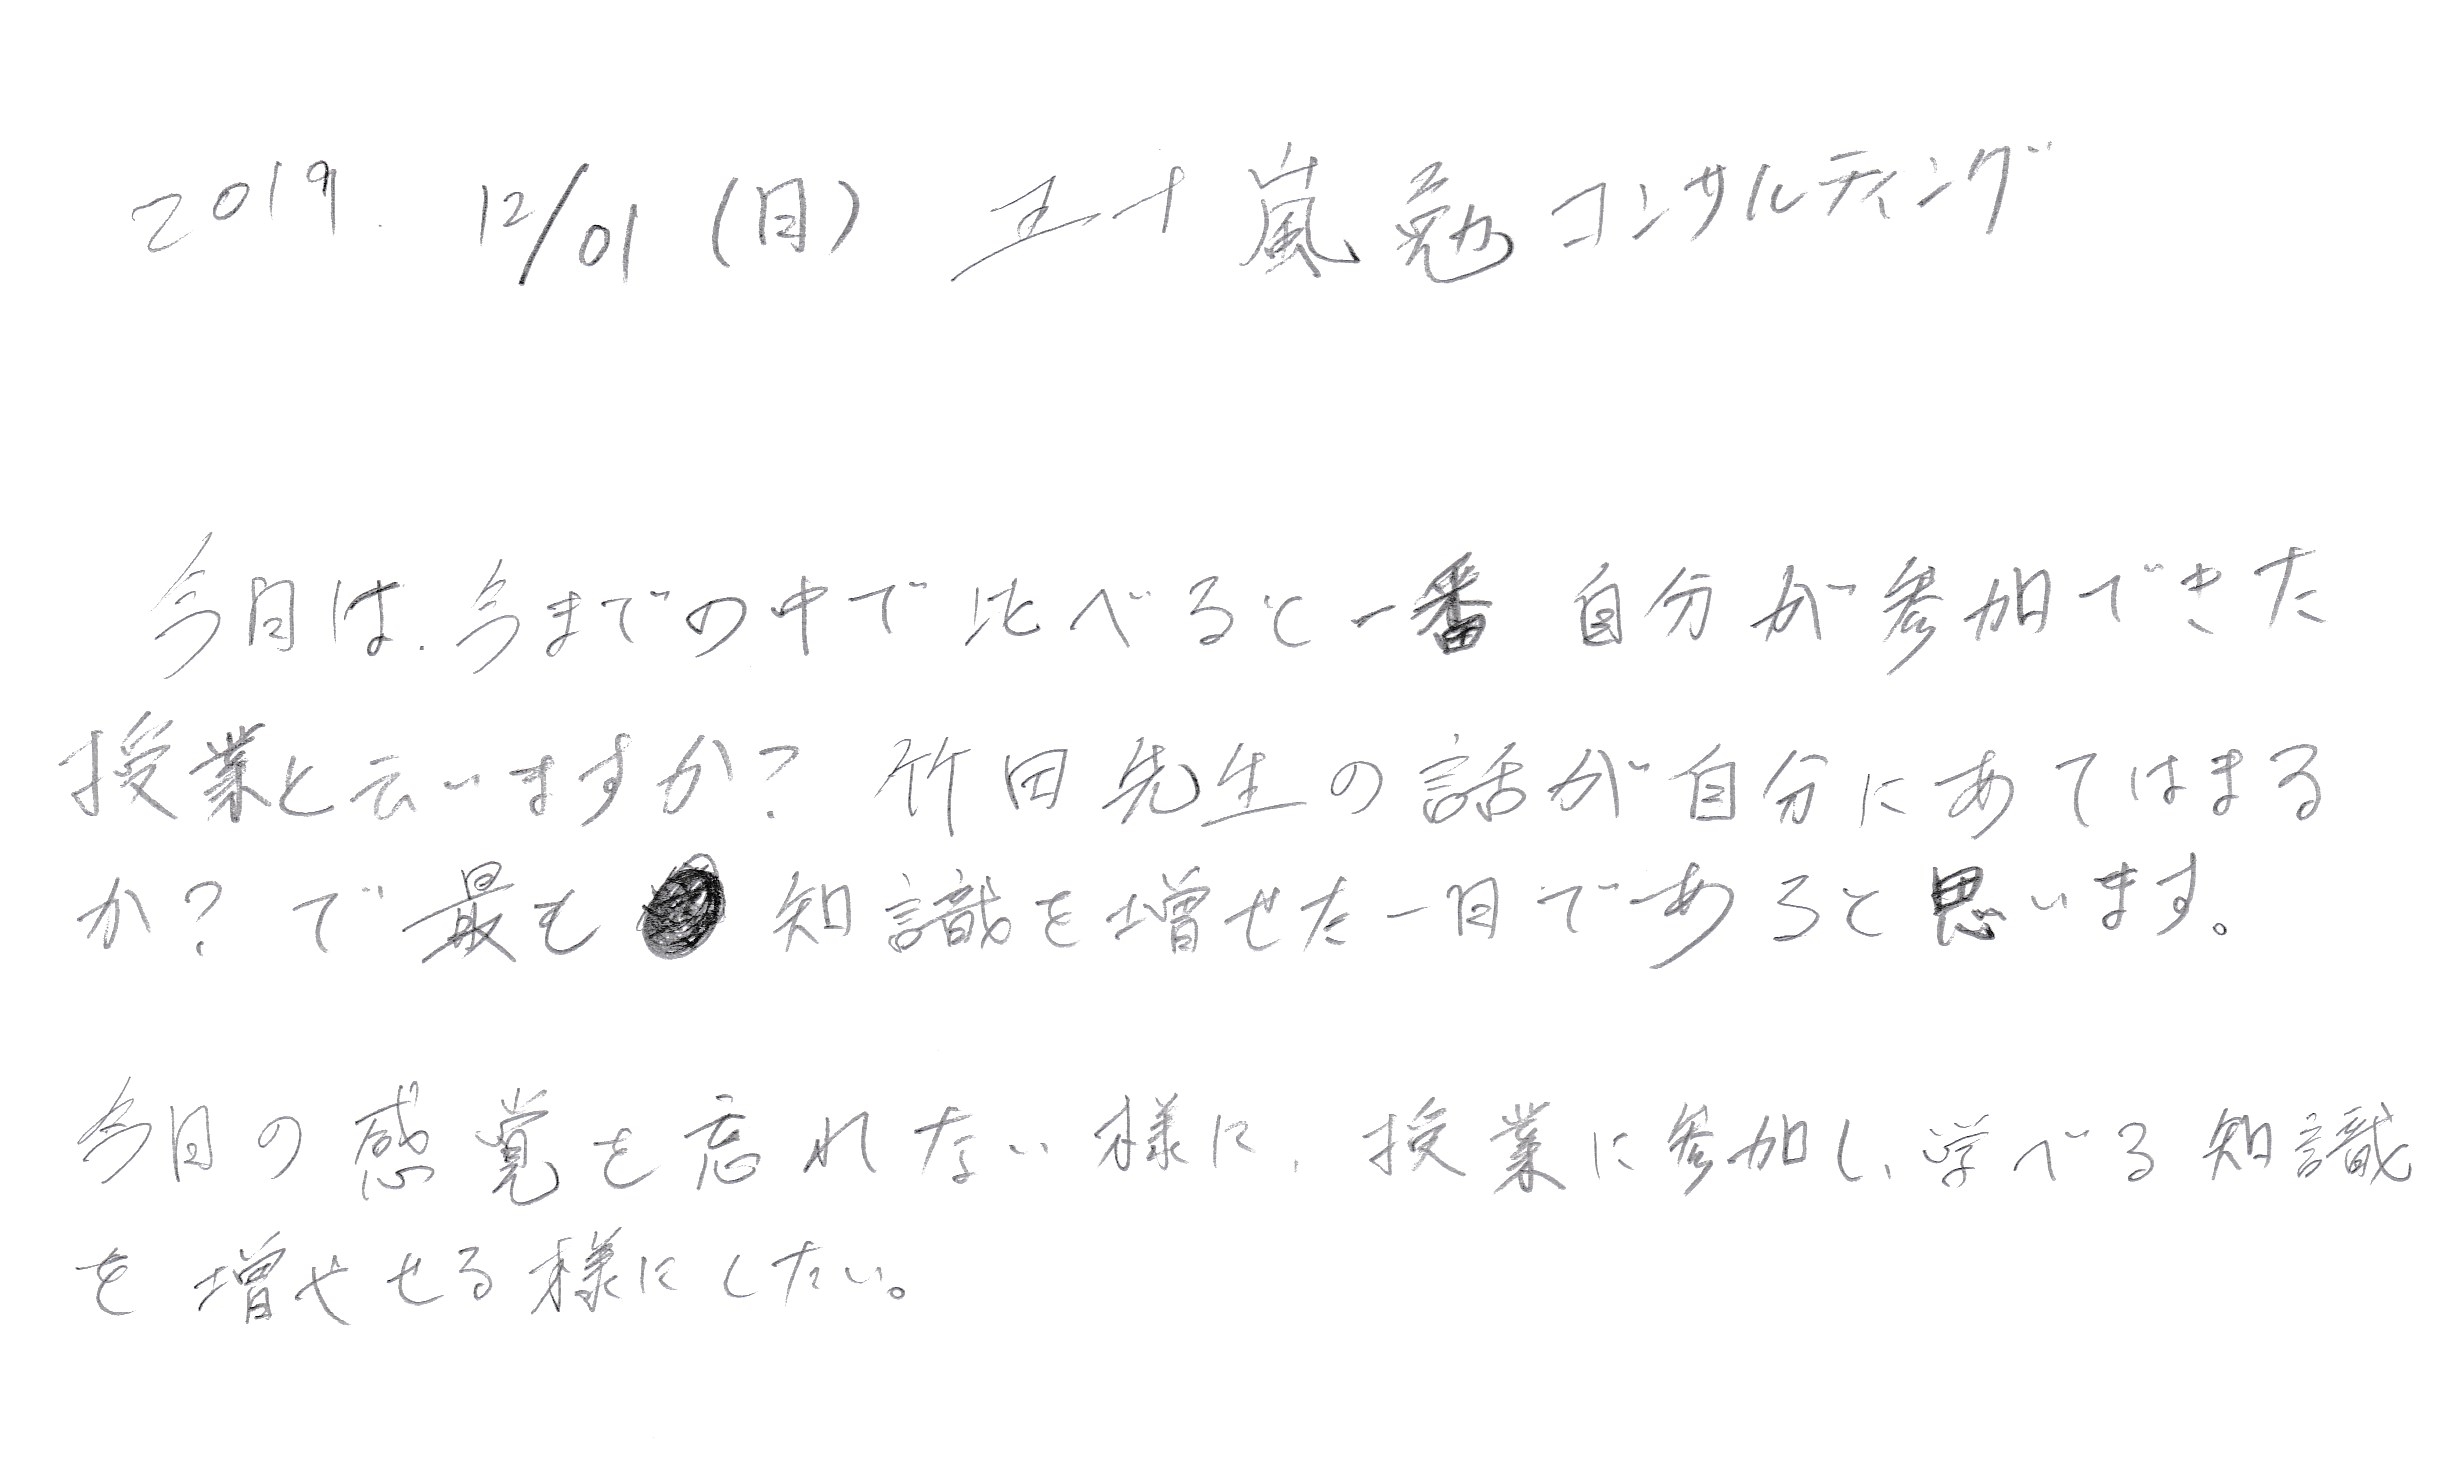 2019. 12/01 (日) 五十嵐勉コンサルティング
今日は、今までの中で比べると一番自分が参加できた
授業と云いますか？竹田先生の話が自分にあてはまる
か？で最も知識を増せた一日であると思います。
今日の感覚を忘れない様に、授業に参加し、学べる知識
を増やせる様にしたい。